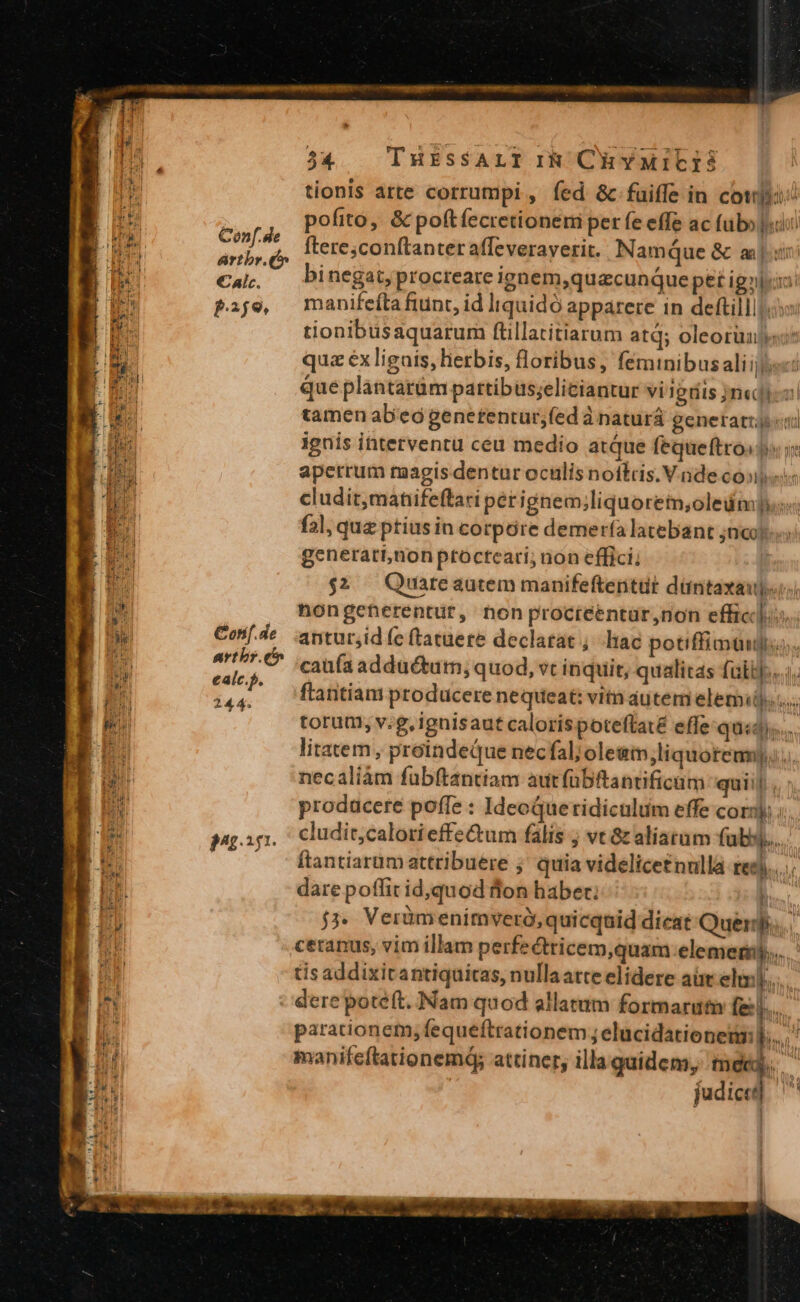 34 THESSALI IN CHYMICIS
tionis arte corrumpi, ſed & fuiſſe in com
poſito, & poſt ſecretionem per ſe eſſe ac ſub
Conſ. de
arthr. &
Calc.
p. 250,
ſiſtere, conſtanter aſſeveraverit. Namque &
bi negat, procreare ignem, quæcunque per
manifeſta fiunt, id liquidò apparere in deſtill
tionibus aquarum ſtillatitiarum atq; oleorum
quæ ex lignis, herbis, floribus, ſeminibus aliij
que plantarum partibus, eliciantur vi ignis
tamen ab eo generentur, ſed à naturâ
ignis interventu ceu medio atque ſequeſtro,
apertum magis dentur oculis noſtris. Vnde con
cludit, manifeſtari per ignem, liquorem, oleum
ſal, quæ prius in corpore demerſa latebant,
generari, non procreari, non effici.
§2 Quare autem manifeſtentur duntaxat
non generentur, non procreentur, non effici
Conſ. de
arthr. &
calc. p.
244.
antur, id ſe ſtatuere declarat, hac potiſſimum
cauſa adductum, quod, vt inquit, qualitas ſub
ſtantiam producere nequeat: vim autem elemen
torum, v. g. ignis aut caloris poteſtatē eſſe qua
litatem, proindeque nec ſal, oleum, liquorem
nec aliam ſubſtantiam aut ſubſtantificum
producere poſſe: Ideoque ridiculum eſſe con
pag. 251. cludit, calori effectum ſalis, vt & aliarum ſub
ſtantiarum attribuere; quia videlicet nulla res
dare poſſit id, quod non habet.
§3. Verùm enimverò, quicquid dicat Quer
cetanus, vim illam perfectricem, quam elemen
tis addixit antiquitas, nulla arte elidere aut
dere potéſt. Nam quod allatum formarum ſe
parationem, ſequeſtrationem, elucidationem
manifeſtationemq; attinet, illa quidem,